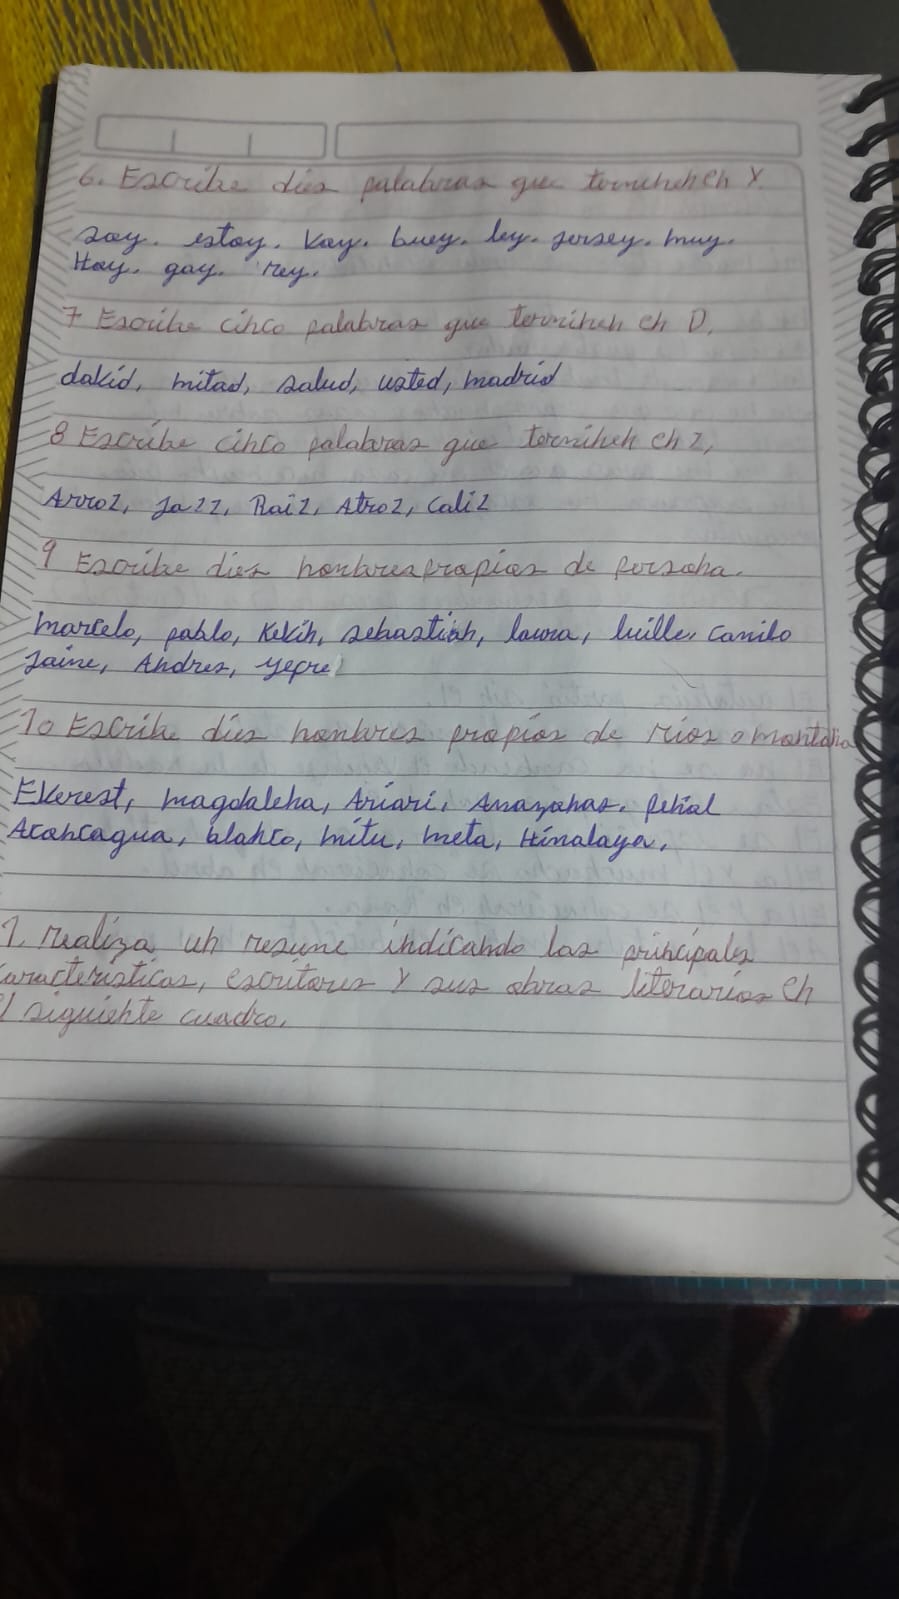 6. Escribe dies palabras que terminen en Y.
soy. estoy. Voy. buey. ley. jersey. muy.
Hoy. gay. rey.
7 Escribe cinco palabras que terminen en D.
david, mitad, salud, usted, madrid
8 Escribe cinco palabras que terminen en z,
Arroz, Jazz, Raiz, Atroz, Caliz
9 Escribe dies nombres propios de persona.
marcelo, pablo, Kevin, sebastian, laura, Camilo
Jaime, Andres,
10 Escribe dies nombres propios de rios o montaña
Everest, magdalena, Ariari, Amazonas. Peñal
Acancagua, blanco, mitu, meta, Himalaya,
1. realiza un resume indicando las principales
características, escritores y sus obras literarias en
el siguiente cuadro.